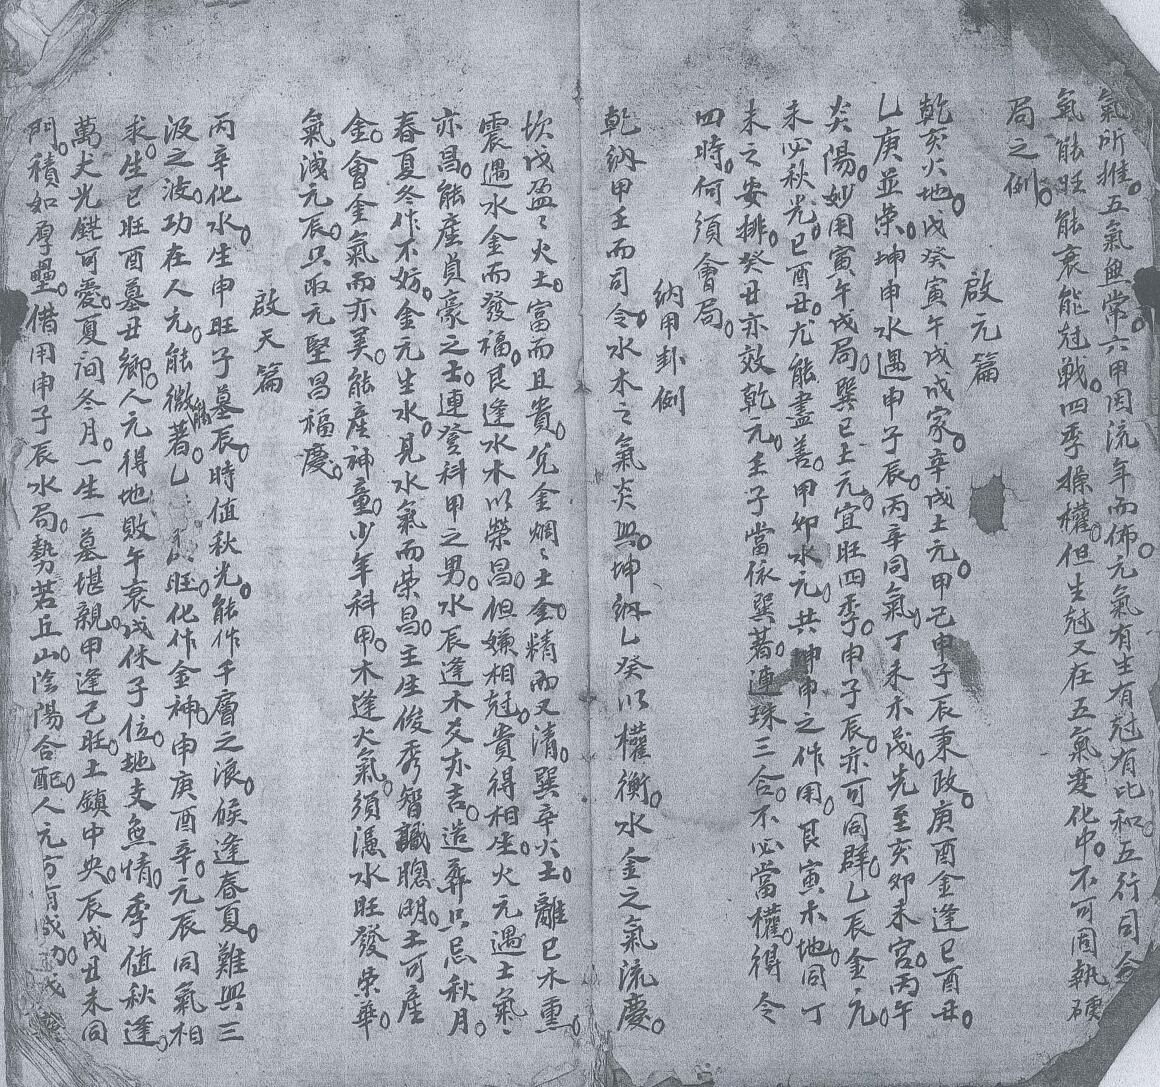 氣所推。五氣無常。六甲因流年而佈。元氣有生有尅有比和。五行司令
氣能旺能衰能尅戰。四季操權。但生尅又在五氣变化中。不可固執硬
局之例。
啟元篇
乾亥火地。戊癸寅午戌成家。辛戌土元。甲己申子辰秉政。庚酉金逢巳酉丑。
乙庚並榮。坤申水遇申子辰。丙辛同氣。丁未木局。先至亥卯未宮。丙午
炎陽。妙用寅午戌局。巽巳土元。宜旺四季。申子辰。亦可同群。乙辰金元。
未必秋光。巳酉丑。尤能盡善。甲卯水元。共坤申之作用。艮寅木地。同丁
未之安排。癸丑亦效乾元。壬子當依巽著。連珠三合。不必當權得令
四時。何須會局。
納甲卦例
乾納甲壬而司令。水木之氣炎興。坤納乙癸以權衡。水金之氣流慶。
坎戊盈〻火土。富而且貴。兌金烱〻土金。精而又清。巽辛火土。離巳木熏。
震遇水金而發福。艮逢水木以榮昌。但嫌相尅。貴得相生。火元遇土氣〻
亦昌。能產員豪之士。連登科甲之男。水辰逢木爻亦吉。造葬只忌秋月。
春夏冬作不妨。金元生水。見水氣而榮昌。主生俊秀智識聰明。土可產
金。會金氣而亦美。能產神童。少年科甲。木逢火氣。須憑水旺發榮華。
氣洩元辰。只取元堅昌福慶。
啟天篇
丙辛化水。生申旺子墓辰。時值秋光。能作千層之浪。候逢春夏。難興三
汲之波。功在人元。能微能著。乙 旺。化作金神。申庚酉辛。元辰同氣相
求。生巳旺酉墓丑鄉。人元得地。敗午衰戌休子位。地支無情。季值秋逢。
萬丈光鋩可愛。夏间冬月。一生一墓堪親。甲逢己旺。土鎮中央。辰戌丑未同
門。積如厚壘。借用申子辰水局。勢若丘山。陰陽合配。人元方有成功。戊